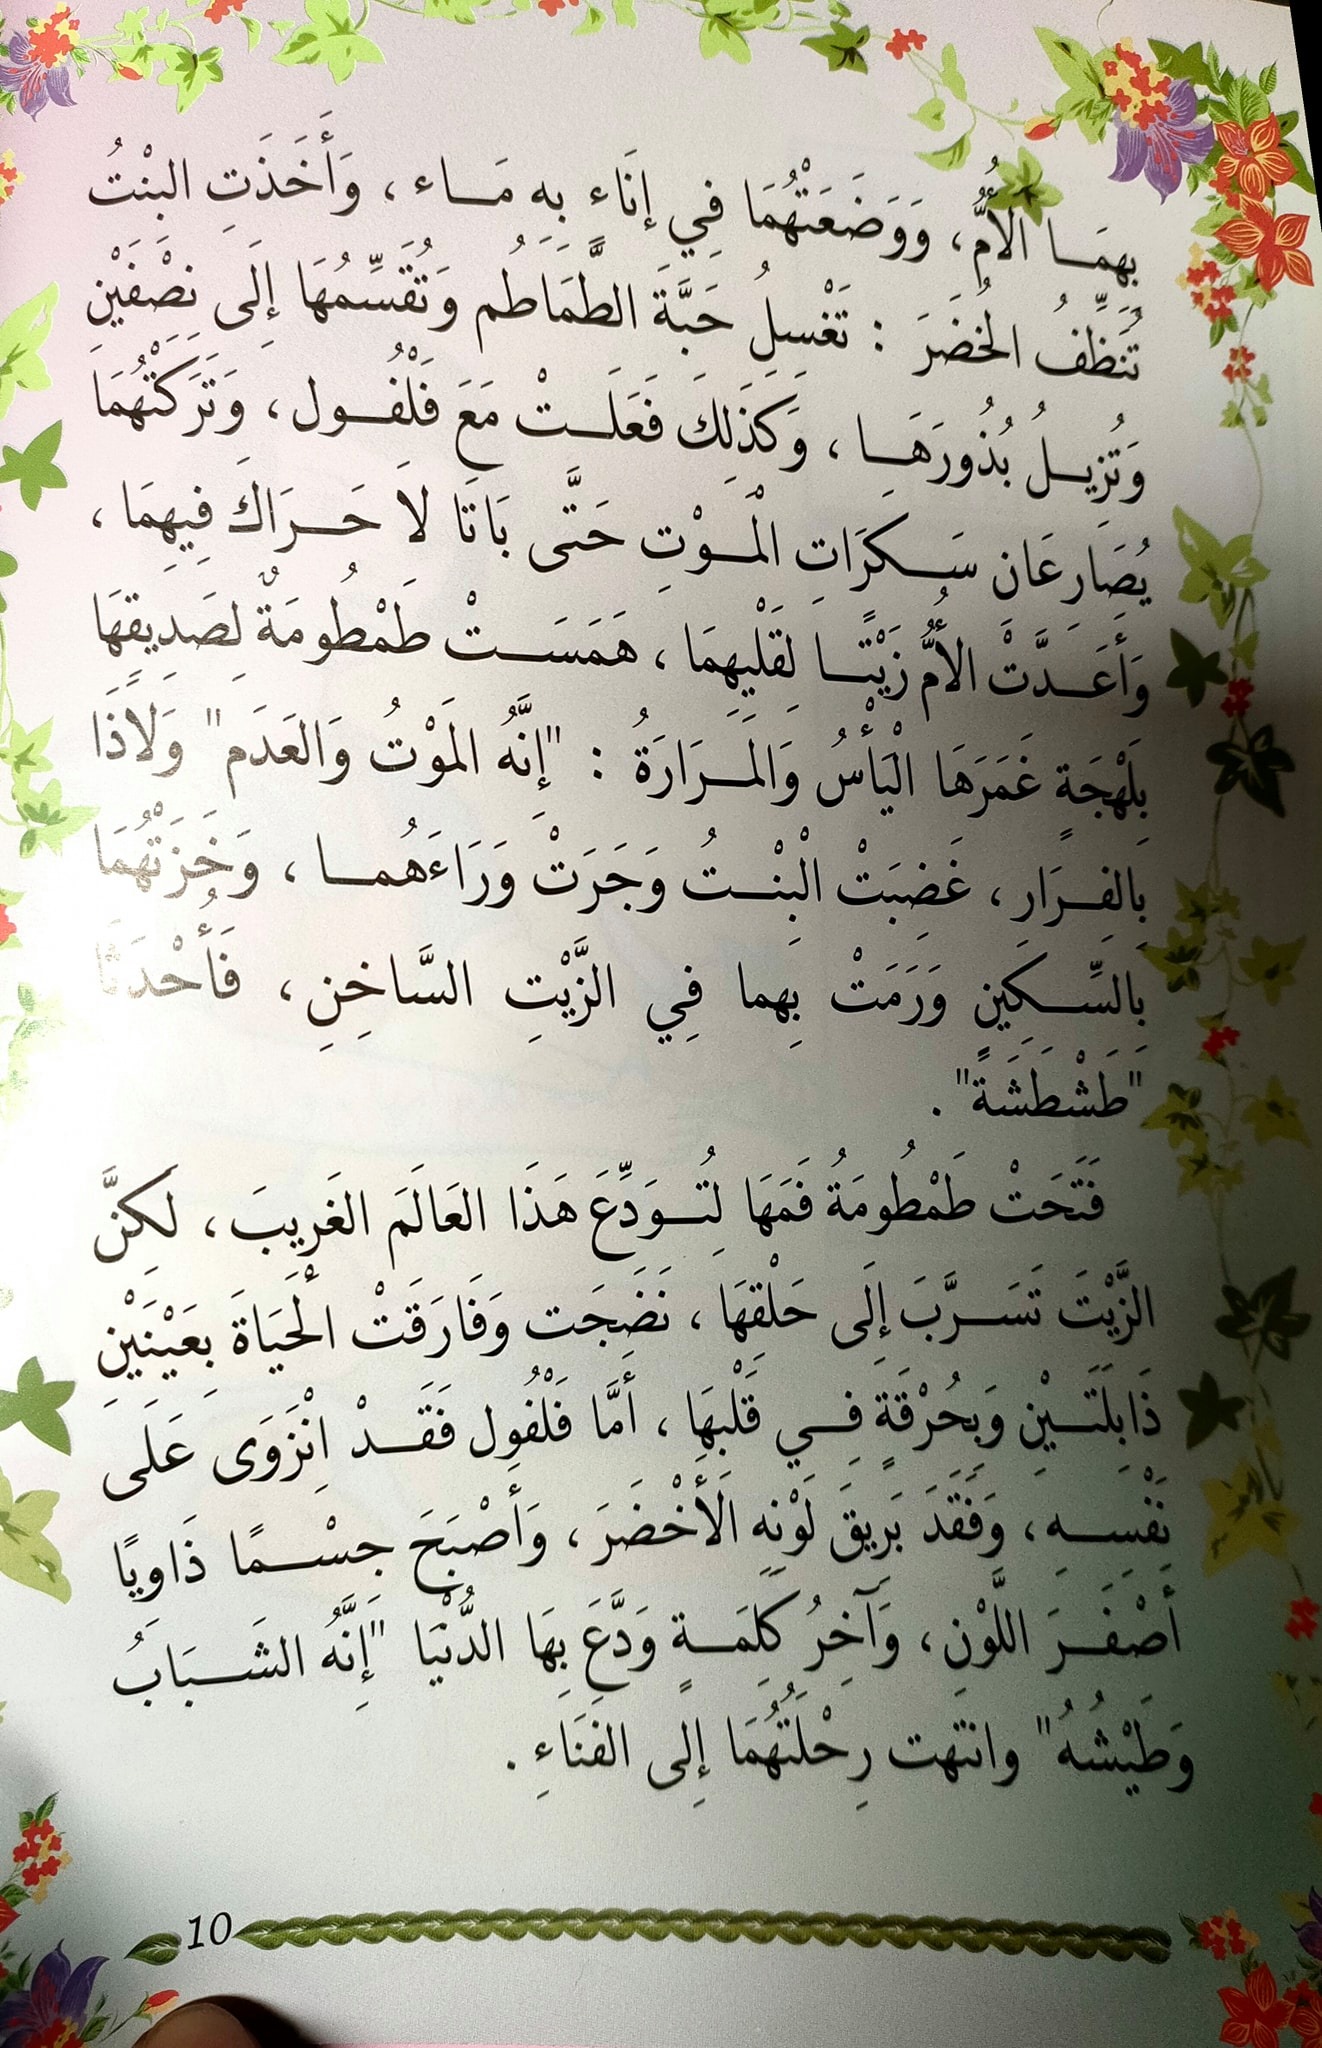 بِهِمَـا الأُمُّ، وَوَضَعَتْهُمَا فِي إنَاءٍ بِهِ مَـاء ، وَأَخَذَتِ البِنْتُ
تُنَظِّفُ الخُضَرَ : تَغْسِلُ حَبَّةَ الطَّمَاطِمِ وَتُقَسِّمُهَا إِلَى نِصْفَيْنِ
وَتُزِيـلُ بُذُورَهَـا ، وَكَذَلِكَ فَعَلَـتْ مَعَ فَلْفُـول ، وَتَرَكَتْهُمَا
يُصَارِعَانِ سَـكَرَاتِ الْمَـوْتِ حَتَّى بَاتَا لاَ حَـرَاكَ فِيهِمَا ،
وَأَعَـدَّتْ الأُمُّ زَيْتًـا لِقَلْيِهِمَا ، هَمَسَـتْ طَمْطُومَةٌ لِصَدِيقِهَا
بِلَهْجَةٍ غَمَرَهَا الْيَأْسُ وَالمَـرَارَةُ : "إنَّهُ المَوْتُ وَالعَدَم" وَلاَذَا
بِالفِـرَارِ ، غَضِبَتْ الْبِنْـتُ وَجَرَتْ وَرَاءَهُمـا ، وَخَزَتْهُمَا
بِالسِّـكِينِ وَرَمَتْ بِهِما فِي الزَّيْتِ السَّاخِنِ ، فَأُحْدَثَا
"طَشْطَشَةً" .
فَتَحَتْ طَمْطُومَةُ فَمَهَا لِتُـوَدِّعَ هَذَا العَالَمَ الغَرِيبَ ، لَكِنَّ
الزَّيْتَ تَسَـرَّبَ إِلَى حَلْقِهَا ، نَضَجَت وَفَارَقَتْ الْحَيَاةَ بِعَيْنَيْنِ
ذَابِلَتَـيْنِ وَبِحُرْقَةٍ فِـي قَلْبِهَا ، أَمَّا فَلْفُول فَقَـدْ انْزَوَى عَلَى
نَفْسِـهِ ، وَفَقَدَ بَرِيقَ لَوْنِهِ الأَخْضَرَ ، وَأَصْبَحَ جِسْـمًا ذَاوِيًا
أَصْفَـرَ اللَّوْنِ ، وَآخِرُ كَلِمَـةٍ وَدَّعَ بِهَا الدُّنْيَا "إِنَّهُ الشَـبَابُ
وَطَيْشُهُ" وانتهت رِحْلَتُهُمَا إِلى الفَنَاءِ .
10